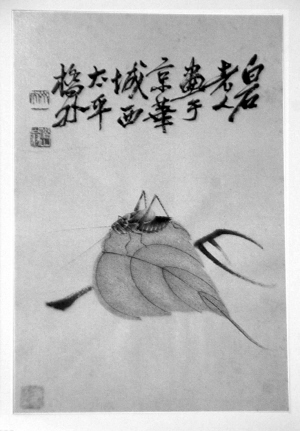 白石
老人
画于
京華
城西
太平
橋外